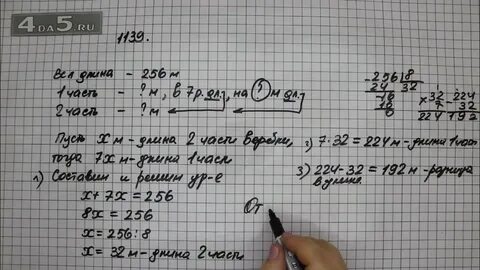 4DA5.RU
1139.
Вся длина - 256 м
1 часть - ? м, в 7 р. дл., на ? м дл.
2 часть - ? м
Пусть x м - длина 2 части верёвки,
тогда 7x м - длина 1 части
1) Составим и решим ур-е
x + 7x = 256
8x = 256
x = 256 : 8
x = 32 м - длина 2 части
256 8
24 32
16
16
0
32
7
224
224
32
192
2) 7·32 = 224 м - длина 1 част
3) 224 - 32 = 192 м - разница
в длине.
От